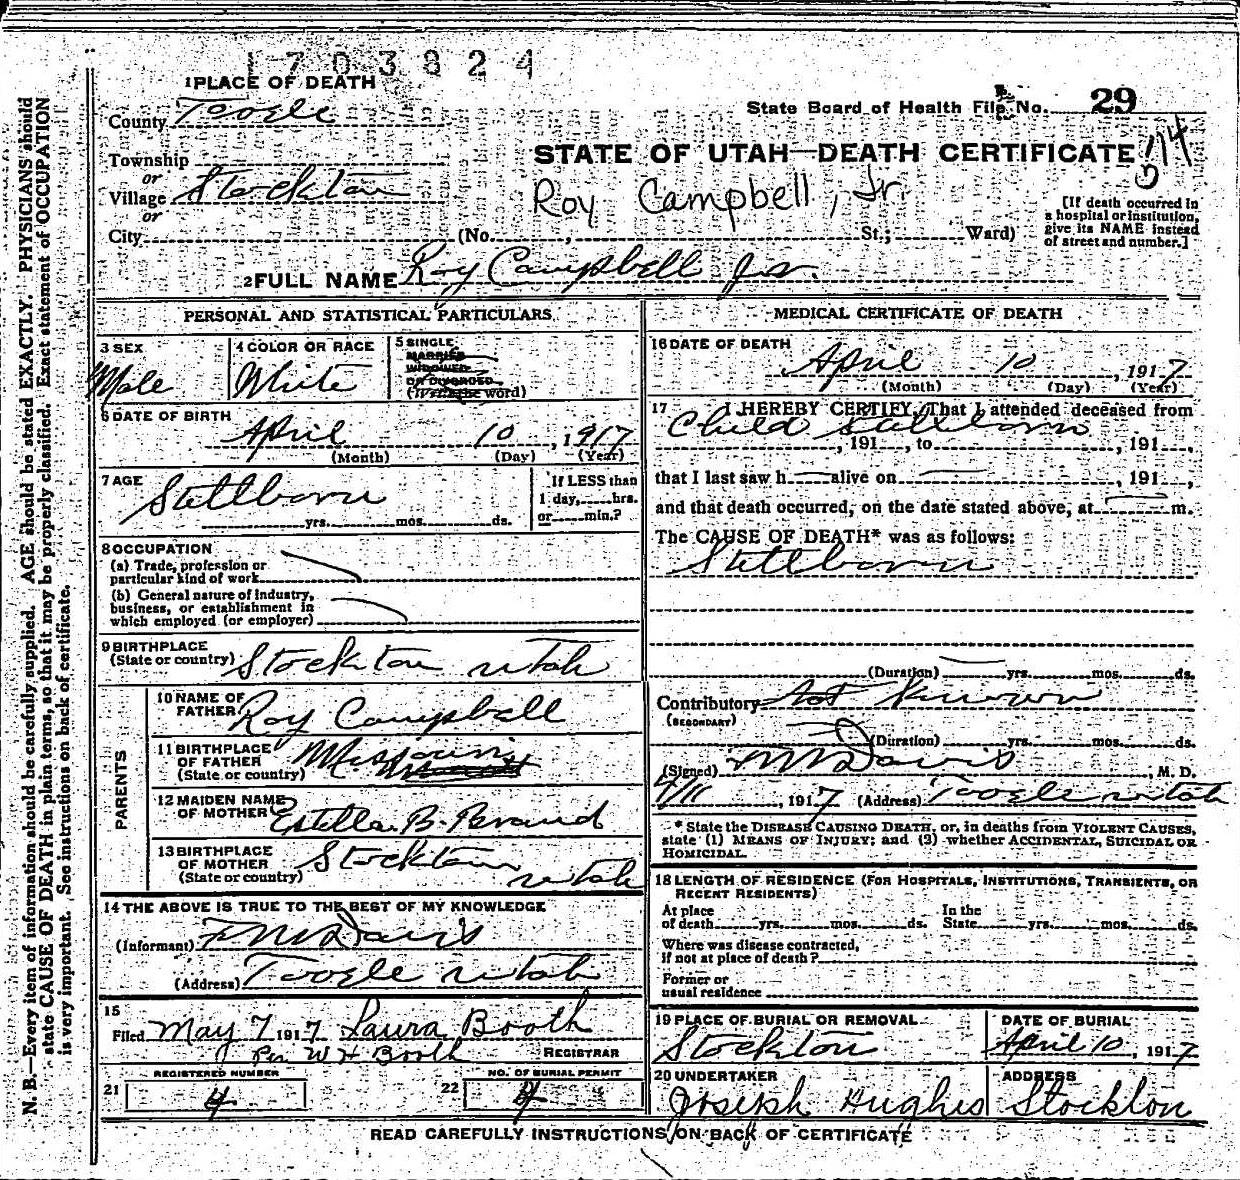 1703824
1 PLACE OF DEATH
County Tooele
State Board of Health File No. 29
Township
or
STATE OF UTAH—DEATH CERTIFICATE
Village Stockton
Roy Campbell, Jr.
or
City (No. , St.; Ward)
[If death occurred in
a hospital or institution,
give its NAME instead
of street and number.]
2 FULL NAME Roy Campbell Jr.
PERSONAL AND STATISTICAL PARTICULARS
3 SEX
Male
4 COLOR OR RACE
White
5 SINGLE
MARRIED
WIDOWED
OR DIVORCED
(Write the word)
6 DATE OF BIRTH
April 10, 1917
(Month) (Day) (Year)
7 AGE
Stillborn
yrs. mos. ds.
If LESS than
1 day, hrs.
or min.?
8 OCCUPATION
(a) Trade, profession or
particular kind of work
(b) General nature of industry,
business, or establishment in
which employed (or employer)
9 BIRTHPLACE
(State or country) Stockton Utah
PARENTS
10 NAME OF
FATHER Roy Campbell
11 BIRTHPLACE
OF FATHER
(State or country) Missouri
12 MAIDEN NAME
OF MOTHER Estella B. Brand
13 BIRTHPLACE
OF MOTHER
(State or country) Stockton
Utah
14 THE ABOVE IS TRUE TO THE BEST OF MY KNOWLEDGE
(Informant) F M Davis
(Address) Tooele Utah
15
Filed May 7 1917 Laura Booth
Per W H Booth REGISTRAR
REGISTERED NUMBER
21 4
NO. OF BURIAL PERMIT
22 4
MEDICAL CERTIFICATE OF DEATH
16 DATE OF DEATH
April 10, 1917
(Month) (Day) (Year)
17 I HEREBY CERTIFY, That I attended deceased from
Child Stillborn
, 191 , to , 191 ,
that I last saw h alive on , 191 ,
and that death occurred, on the date stated above, at m.
The CAUSE OF DEATH* was as follows:
Stillborn
(Duration) yrs. mos. ds.
Contributory Not Known
(SECONDARY)
(Duration) yrs. mos. ds.
(Signed) M Davis, M. D.
4/11, 1917 (Address) Tooele Utah
* State the DISEASE CAUSING DEATH, or, in deaths from VIOLENT CAUSES,
state (1) MEANS OF INJURY; and (2) whether ACCIDENTAL, SUICIDAL OR
HOMICIDAL.
18 LENGTH OF RESIDENCE (FOR HOSPITALS, INSTITUTIONS, TRANSIENTS, OR
RECENT RESIDENTS)
At place
of death yrs. mos. ds.
In the
State yrs. mos. ds.
Where was disease contracted,
if not at place of death?
Former or
usual residence
19 PLACE OF BURIAL OR REMOVAL
Stockton
DATE OF BURIAL
April 10, 1917
20 UNDERTAKER
Joseph Hughes
ADDRESS
Stockton
READ CAREFULLY INSTRUCTIONS ON BACK OF CERTIFICATE
N. B.—Every item of information should be carefully supplied. AGE should be stated EXACTLY. PHYSICIANS should
state CAUSE OF DEATH in plain terms, so that it may be properly classified. Exact statement of OCCUPATION
is very important. See instructions on back of certificate.